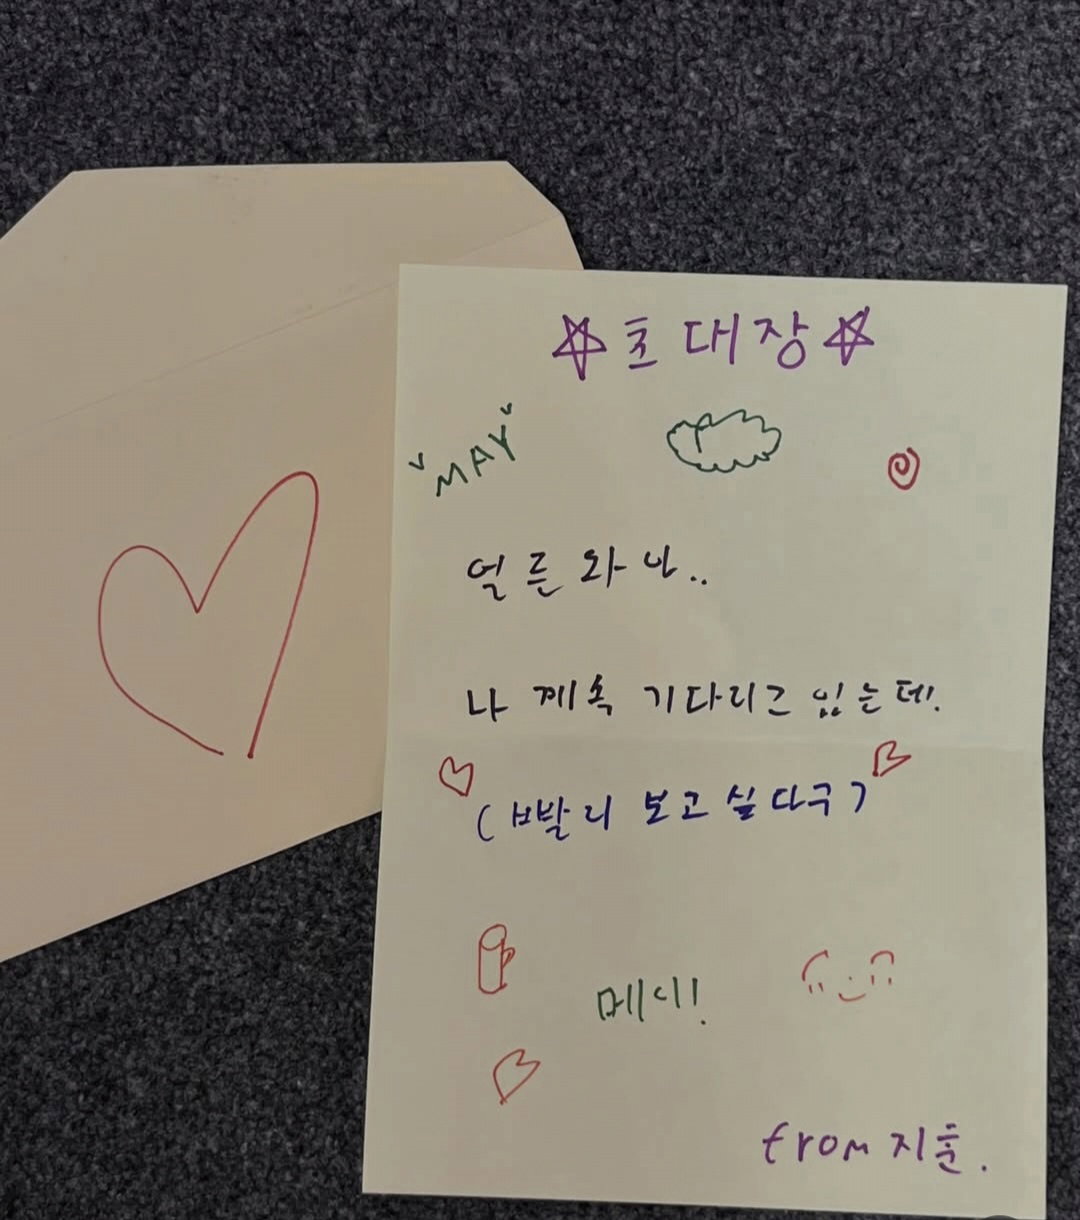 ☆초대장☆
"MAY"
얼른 와아..
나 계속 기다리고 있는데!
(빨리 보고싶다구)
메이!
from 지훈.